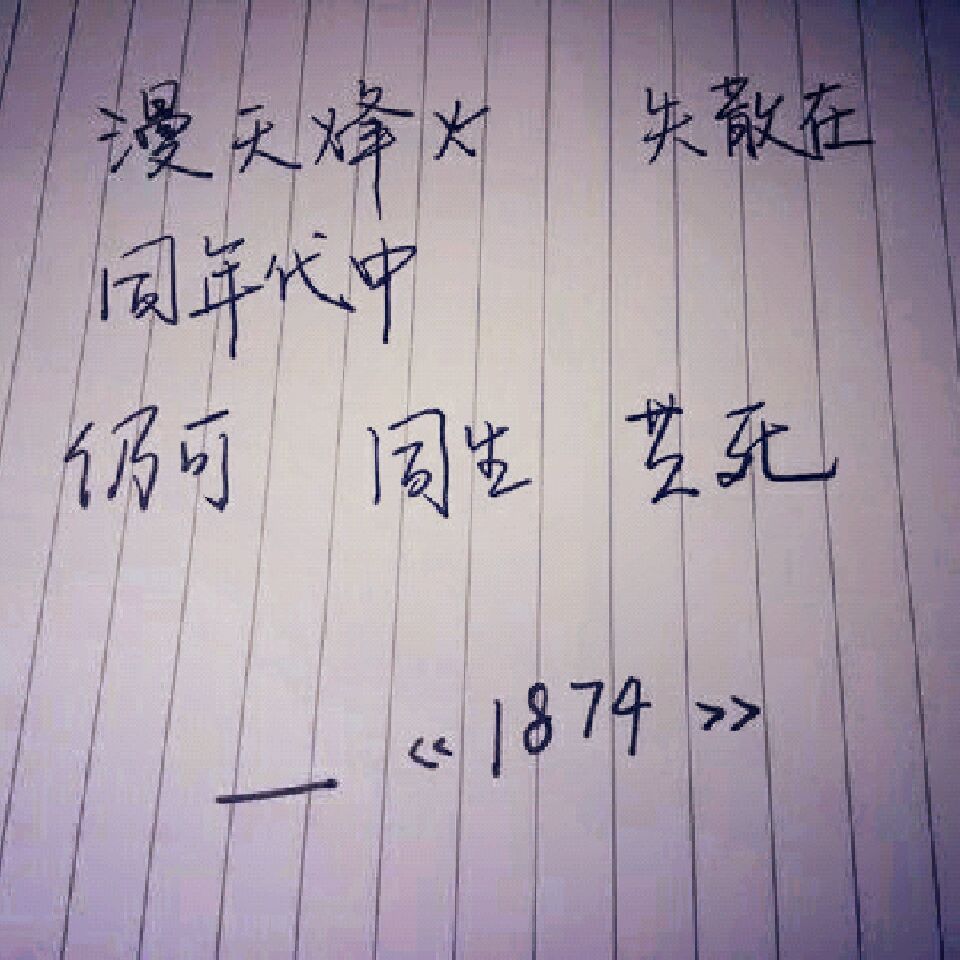 漫天烽火 失散在
同年代中
仍可 同生 共死
—《1874》